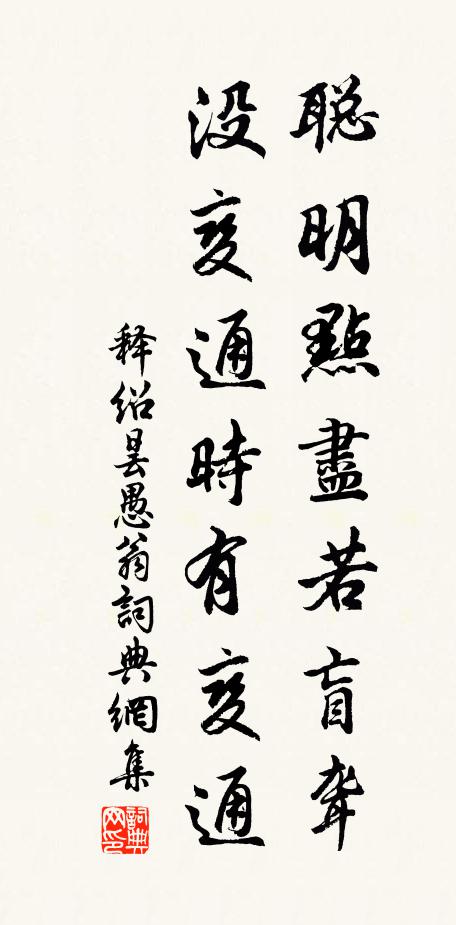 聡明點盡若盲聋
没变通時有变通
释绍昙愚翁詞典網集
詞典网印